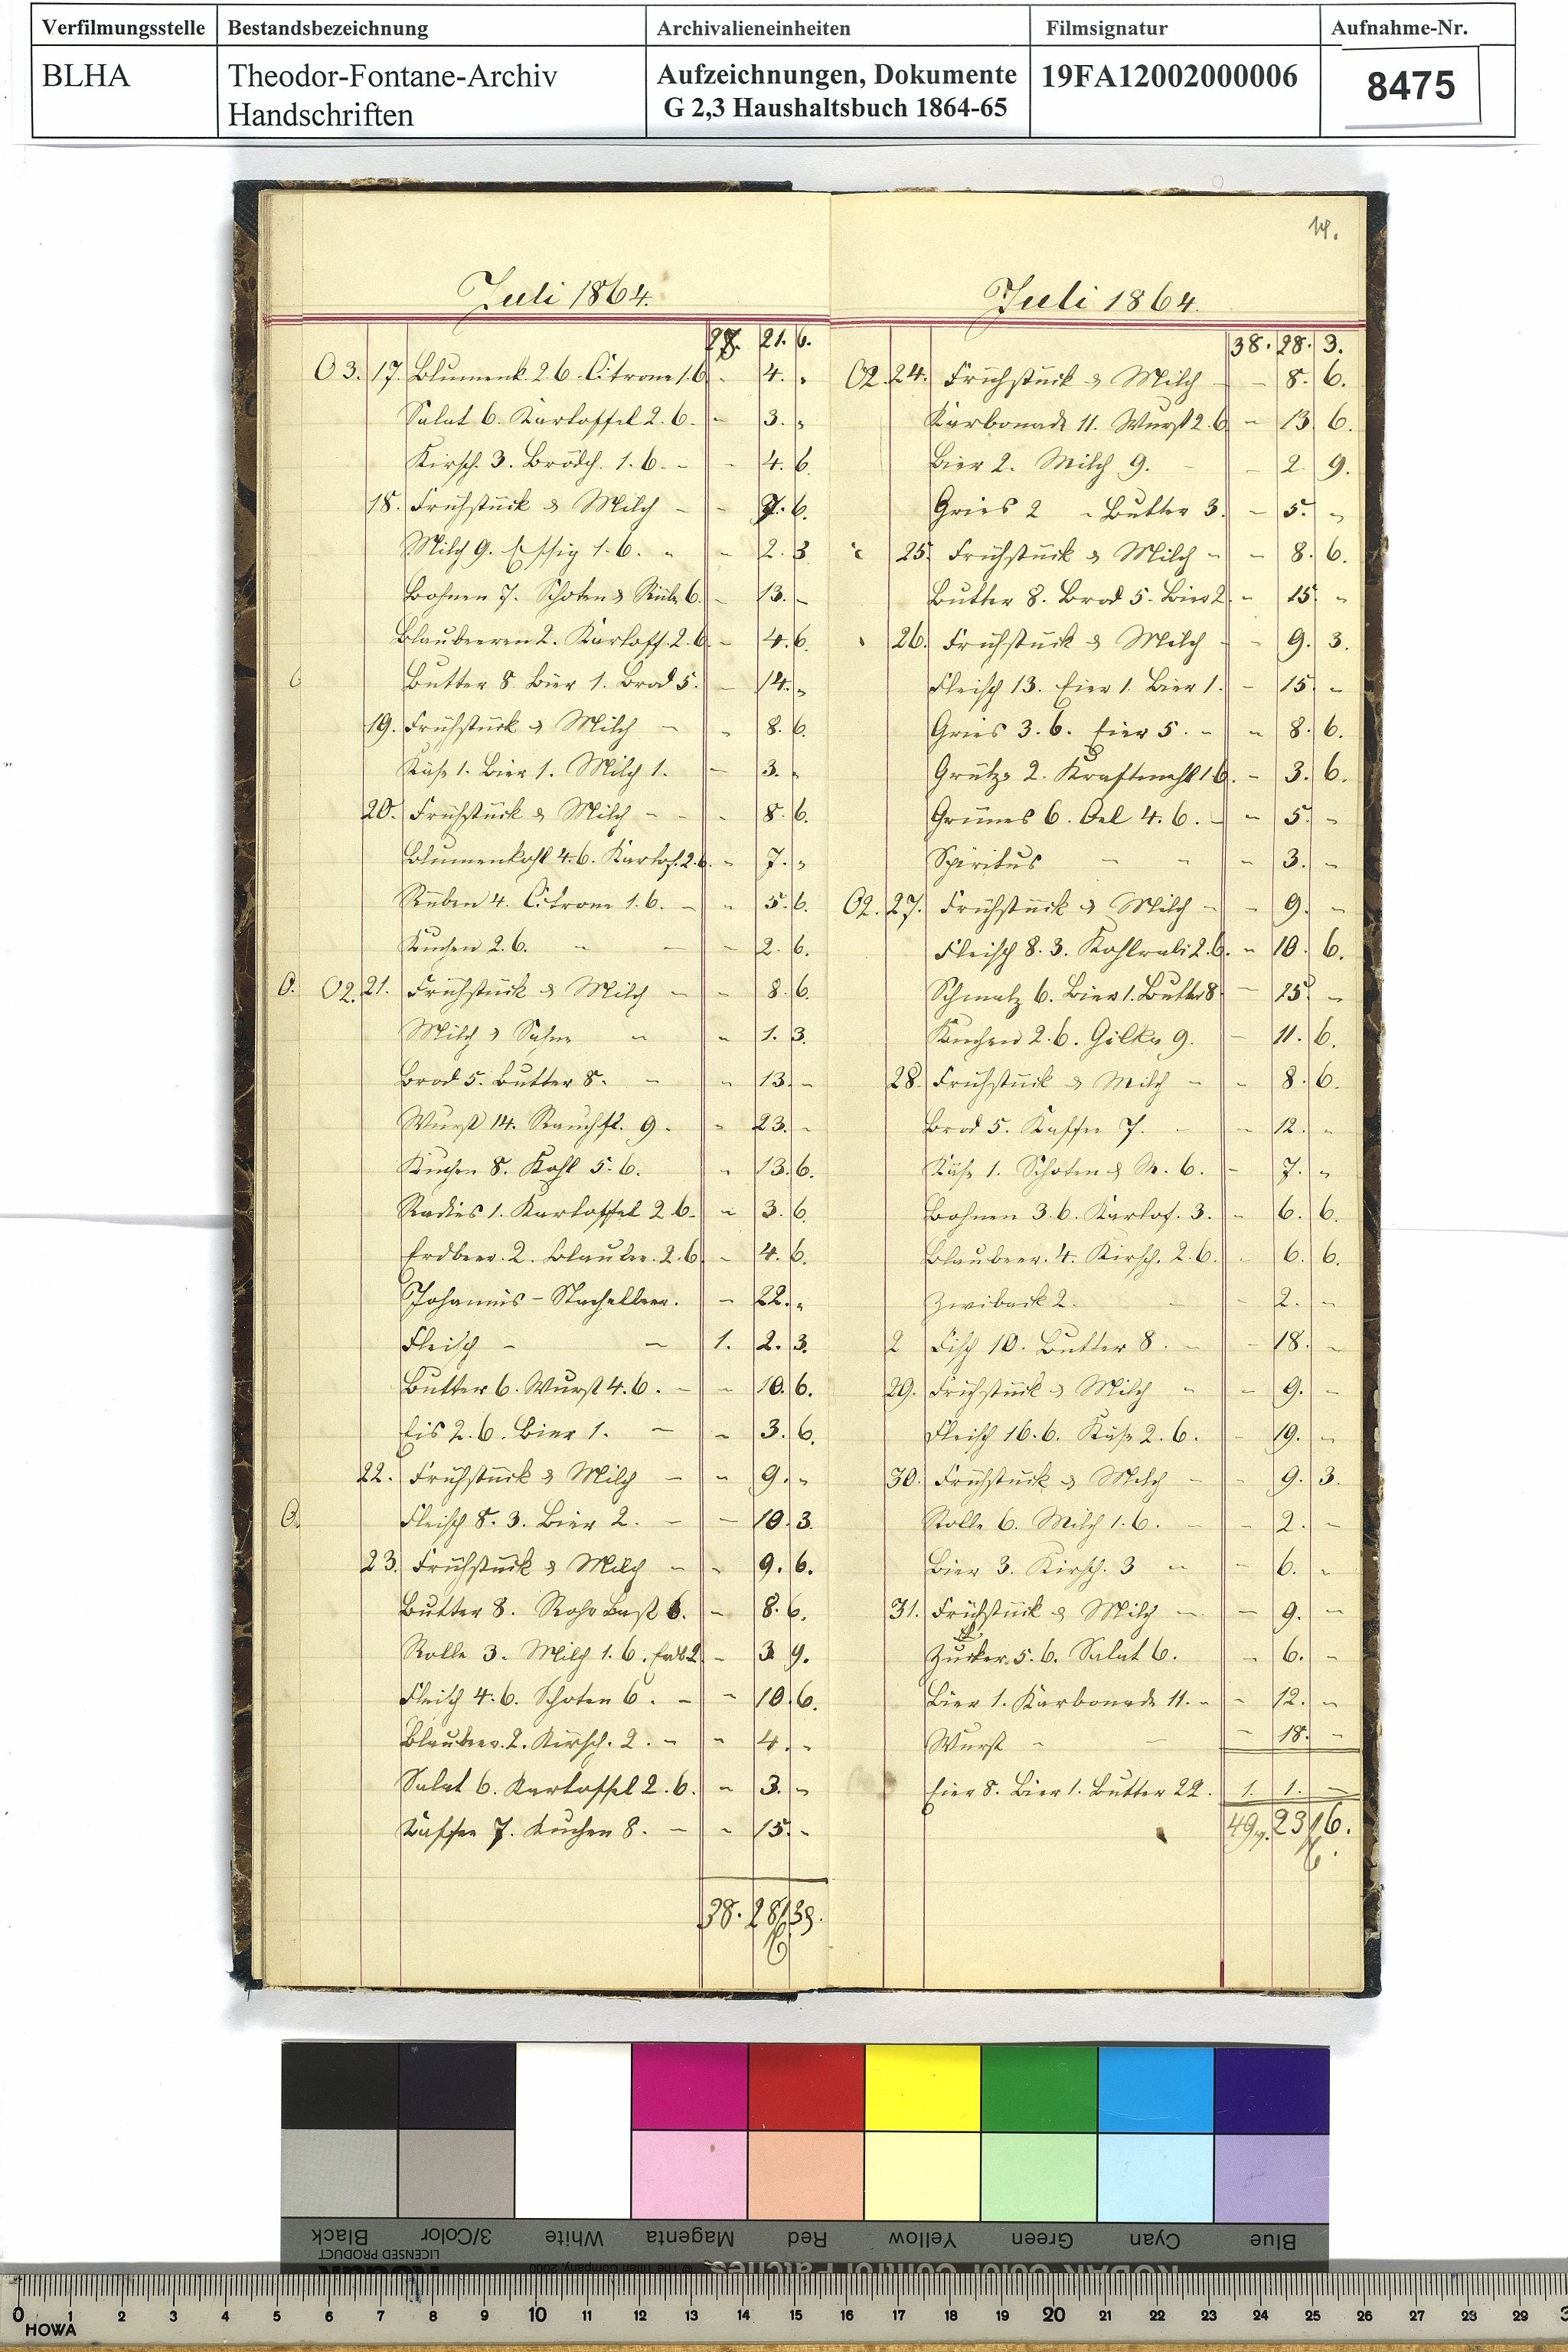 Verfilmungsstelle Bestandsbezeichnung Archivalieneinheiten Filmsignatur Aufnahme-Nr.
BLHA Theodor-Fontane-Archiv Handschriften Aufzeichnungen, Dokumente G 2,3 Haushaltsbuch 1864-65 19FA12002000006 8475
Juli 1864.
28. 21. 6.
O 3. 17. Blumenk. 2.6. Citrone 1.6. - 4. "
Salat 6. Kartoffel 2.6. - 3. "
Kirsch. 3. Brödch. 1.6. - - 4. 6.
18. Frühstück & Milch - - 7. 6.
Milch 9. Essig 1.6. " - 2. 3
Bohnen 7. Schoten & Rübe 6. - 13. -
Blaubeeren 2. Kartoff. 2.6. - 4. 6.
Butter 8. Bier 1. Brod 5. - 14. "
19. Frühstück & Milch - - 8. 6.
Käse 1. Bier 1. Milch 1. - 3. "
20. Frühstück & Milch - - - 8. 6.
Blumenkohl 4.6. Kartof. 2.6. - 7. "
Rüben 4. Citrone 1.6. - - 5. 6.
Kuchen 2.6. - - - 2. 6.
O. O2. 21. Frühstück & Milch - - 8. 6.
Milch & Sahne - - 1. 3.
Brod 5. Butter 8. - - 13. -
Wurst 14. Rauchfl. 9. - 23. -
Kuchen 8. Kohl 5.6. - 13. 6.
Radies 1. Kartoffel 2.6. - 3. 6.
Erdbeer. 2. Blaubee. 2.6. - 4. 6.
Johannis-Stachelbeer. - 22. "
Fleisch - - 1. 2. 3.
Butter 6. Wurst 4.6. - - 10. 6.
Eis 2.6. Bier 1. - - 3. 6.
22. Frühstück & Milch - - 9. "
O. Fleisch 8.3. Bier 2. - - 10. 3.
23. Frühstück & Milch - - 9. 6.
Butter 8. 6. - 8. 6.
Rolle 3. Milch 1.6. Erdb. 2 - 3 9.
Fleisch 4.6. Schoten 6. - - 10. 6.
Blaubeer. 2. Kirsch. 2. - - 4. -
Salat 6. Kartoffel 2.6. - 3. -
Kaffee 7. Kuchen 8. - - 15. -
38. 28/ 3
14.
Juli 1864.
38. 28. 3.
O2. 24. Frühstück & Milch - - 8. 6.
Karbonade 11. Wurst 2.6. - 13. 6.
Bier 2. Milch 9. - - 2. 9.
Gries 2 - Butter 3. - 5. "
25. Frühstück & Milch - - 8. 6.
Butter 8. Brod 5. Bier 2. - 15. "
26. Frühstück & Milch - - 9. 3.
Fleisch 13. Eier 1. Bier 1. - 15. -
Gries 3.6. Eier 5. - - 8. 6.
Grütze 2. Kraftmehl 1.6. - 3. 6.
Grünes 6. Oel 4.6. - - 5. -
Spiritus - - - 3. -
O2. 27. Frühstück & Milch - - 9. -
Fleisch 8.3. Kohlrabi 2.6. - 10. 6.
Schmalz 6. Bier 1. Butter 8 - 15. -
Kuchen 2.6. Gilka 9. - 11. 6.
28. Frühstück & Milch - - 8. 6.
Brod 5. Kaffee 7. - - 12. "
Käse 1. Schoten & M. 6. - 7. "
Bohnen 3.6. Kartof. 3. - 6. 6.
Blaubeer. 4. Kirsch. 2.6. - 6. 6.
Zwiback 2. - - 2. -
2 Fisch 10. Butter 8. - - 18. -
29. Frühstück & Milch - - 9. -
Fleisch 16.6. Käse 2.6. - 19. -
30. Frühstück & Milch - - 9. 3.
Rolle 6. Milch 1.6. - - 2. -
Bier 3. Kirsch. 3 - - 6. -
31. Frühstück & Milch - - 9. -
Zucker 5.6. Salat 6. - 6. -
Bier 1. Karbonade 11. - - 12. -
Wurst - - - 18. -
Eier 8. Bier 1. Butter 22. 1. 1. -
49 23/ 6.
Black 3/Color White Magenta Red Yellow Green Cyan Blue
LICENSED PRODUCT
Kodak © The Tiffen Company, 2000 KODAK Color Control Patches
0 1 2 3 4 5 6 7 8 9 10 11 12 13 14 15 16 17 18 19 20 21 22 23 24 25 26 27 28 29 3
HOWA